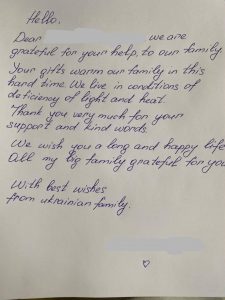 Hello.
Dear we are
grateful for your help, to our family
Your gifts warm our family in this
hard time. We live in conditions of
deficiency of light and heat.
Thank you very much for your
support and kind words.
We wish you a long and happy life
All my big family grateful for you
With best wishes
from ukrainian family.